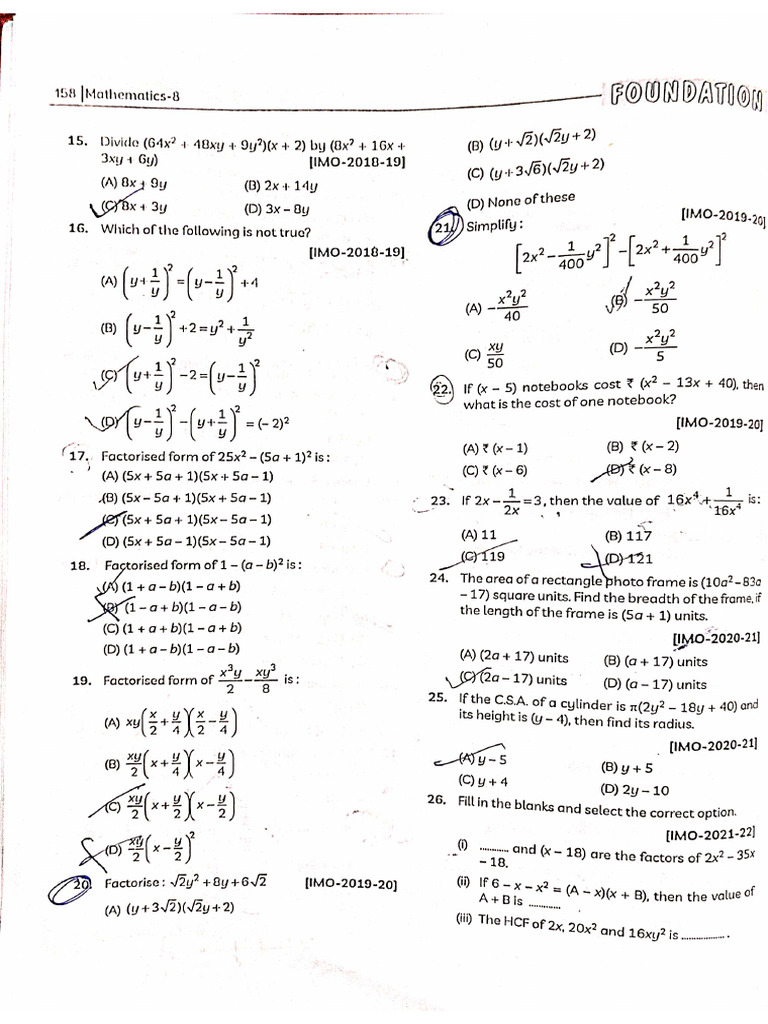 158 | Mathematics-8
FOUNDATION
15. Divide (64x² + 48xy + 9y²)(x + 2) by (8x² + 16x +
3xy + 6y) [IMO-2018-19]
(A) 8x + 9y (B) 2x + 14y
(C) 8x + 3y (D) 3x – 8y
16. Which of the following is not true?
[IMO-2018-19]
(A) (y + 1/y)² = (y – 1/y)² + 4
(B) (y – 1/y)² + 2 = y² + 1/y²
(C) (y + 1/y)² – 2 = (y – 1/y)²
(D) (y – 1/y)² – (y + 1/y)² = (– 2)²
17. Factorised form of 25x² – (5a + 1)² is :
(A) (5x + 5a + 1)(5x + 5a – 1)
(B) (5x – 5a + 1)(5x + 5a – 1)
(C) (5x + 5a + 1)(5x – 5a – 1)
(D) (5x + 5a – 1)(5x – 5a – 1)
18. Factorised form of 1 – (a – b)² is :
(A) (1 + a – b)(1 – a + b)
(B) (1 – a + b)(1 – a – b)
(C) (1 + a + b)(1 – a + b)
(D) (1 + a – b)(1 – a – b)
19. Factorised form of x³y/2 – xy³/8 is :
(A) xy(x/2 + y/4)(x/2 – y/4)
(B) xy/2(x + y/4)(x – y/4)
(C) xy/2(x + y/2)(x – y/2)
(D) xy/2(x – y/2)²
20. Factorise : √2y² + 8y + 6√2 [IMO-2019-20]
(A) (y + 3√2)(√2y + 2)
(B) (y + √2)(√2y + 2)
(C) (y + 3√6)(√2y + 2)
(D) None of these
[IMO-2019-20]
21. Simplify :
[2x² – 1/400 y²]² – [2x² + 1/400 y²]²
(A) – x²y²/40 (B) – x²y²/50
(C) xy/50 (D) – x²y²/5
22. If (x – 5) notebooks cost ₹ (x² – 13x + 40), then
what is the cost of one notebook?
[IMO-2019-20]
(A) ₹ (x – 1) (B) ₹ (x – 2)
(C) ₹ (x – 6) (D) ₹ (x – 8)
23. If 2x – 1/2x = 3, then the value of 16x⁴ + 1/16x⁴ is:
(A) 11 (B) 117
(C) 119 (D) 121
24. The area of a rectangle photo frame is (10a² – 83a
– 17) square units. Find the breadth of the frame, if
the length of the frame is (5a + 1) units.
[IMO-2020-21]
(A) (2a + 17) units (B) (a + 17) units
(C) (2a – 17) units (D) (a – 17) units
25. If the C.S.A. of a cylinder is π(2y² – 18y + 40) and
its height is (y – 4), then find its radius.
[IMO-2020-21]
(A) y – 5 (B) y + 5
(C) y + 4 (D) 2y – 10
26. Fill in the blanks and select the correct option.
[IMO-2021-22]
(i) ........... and (x – 18) are the factors of 2x² – 35x
– 18.
(ii) If 6 – x – x² = (A – x)(x + B), then the value of
A + B is ............
(iii) The HCF of 2x, 20x² and 16xy² is ................. .